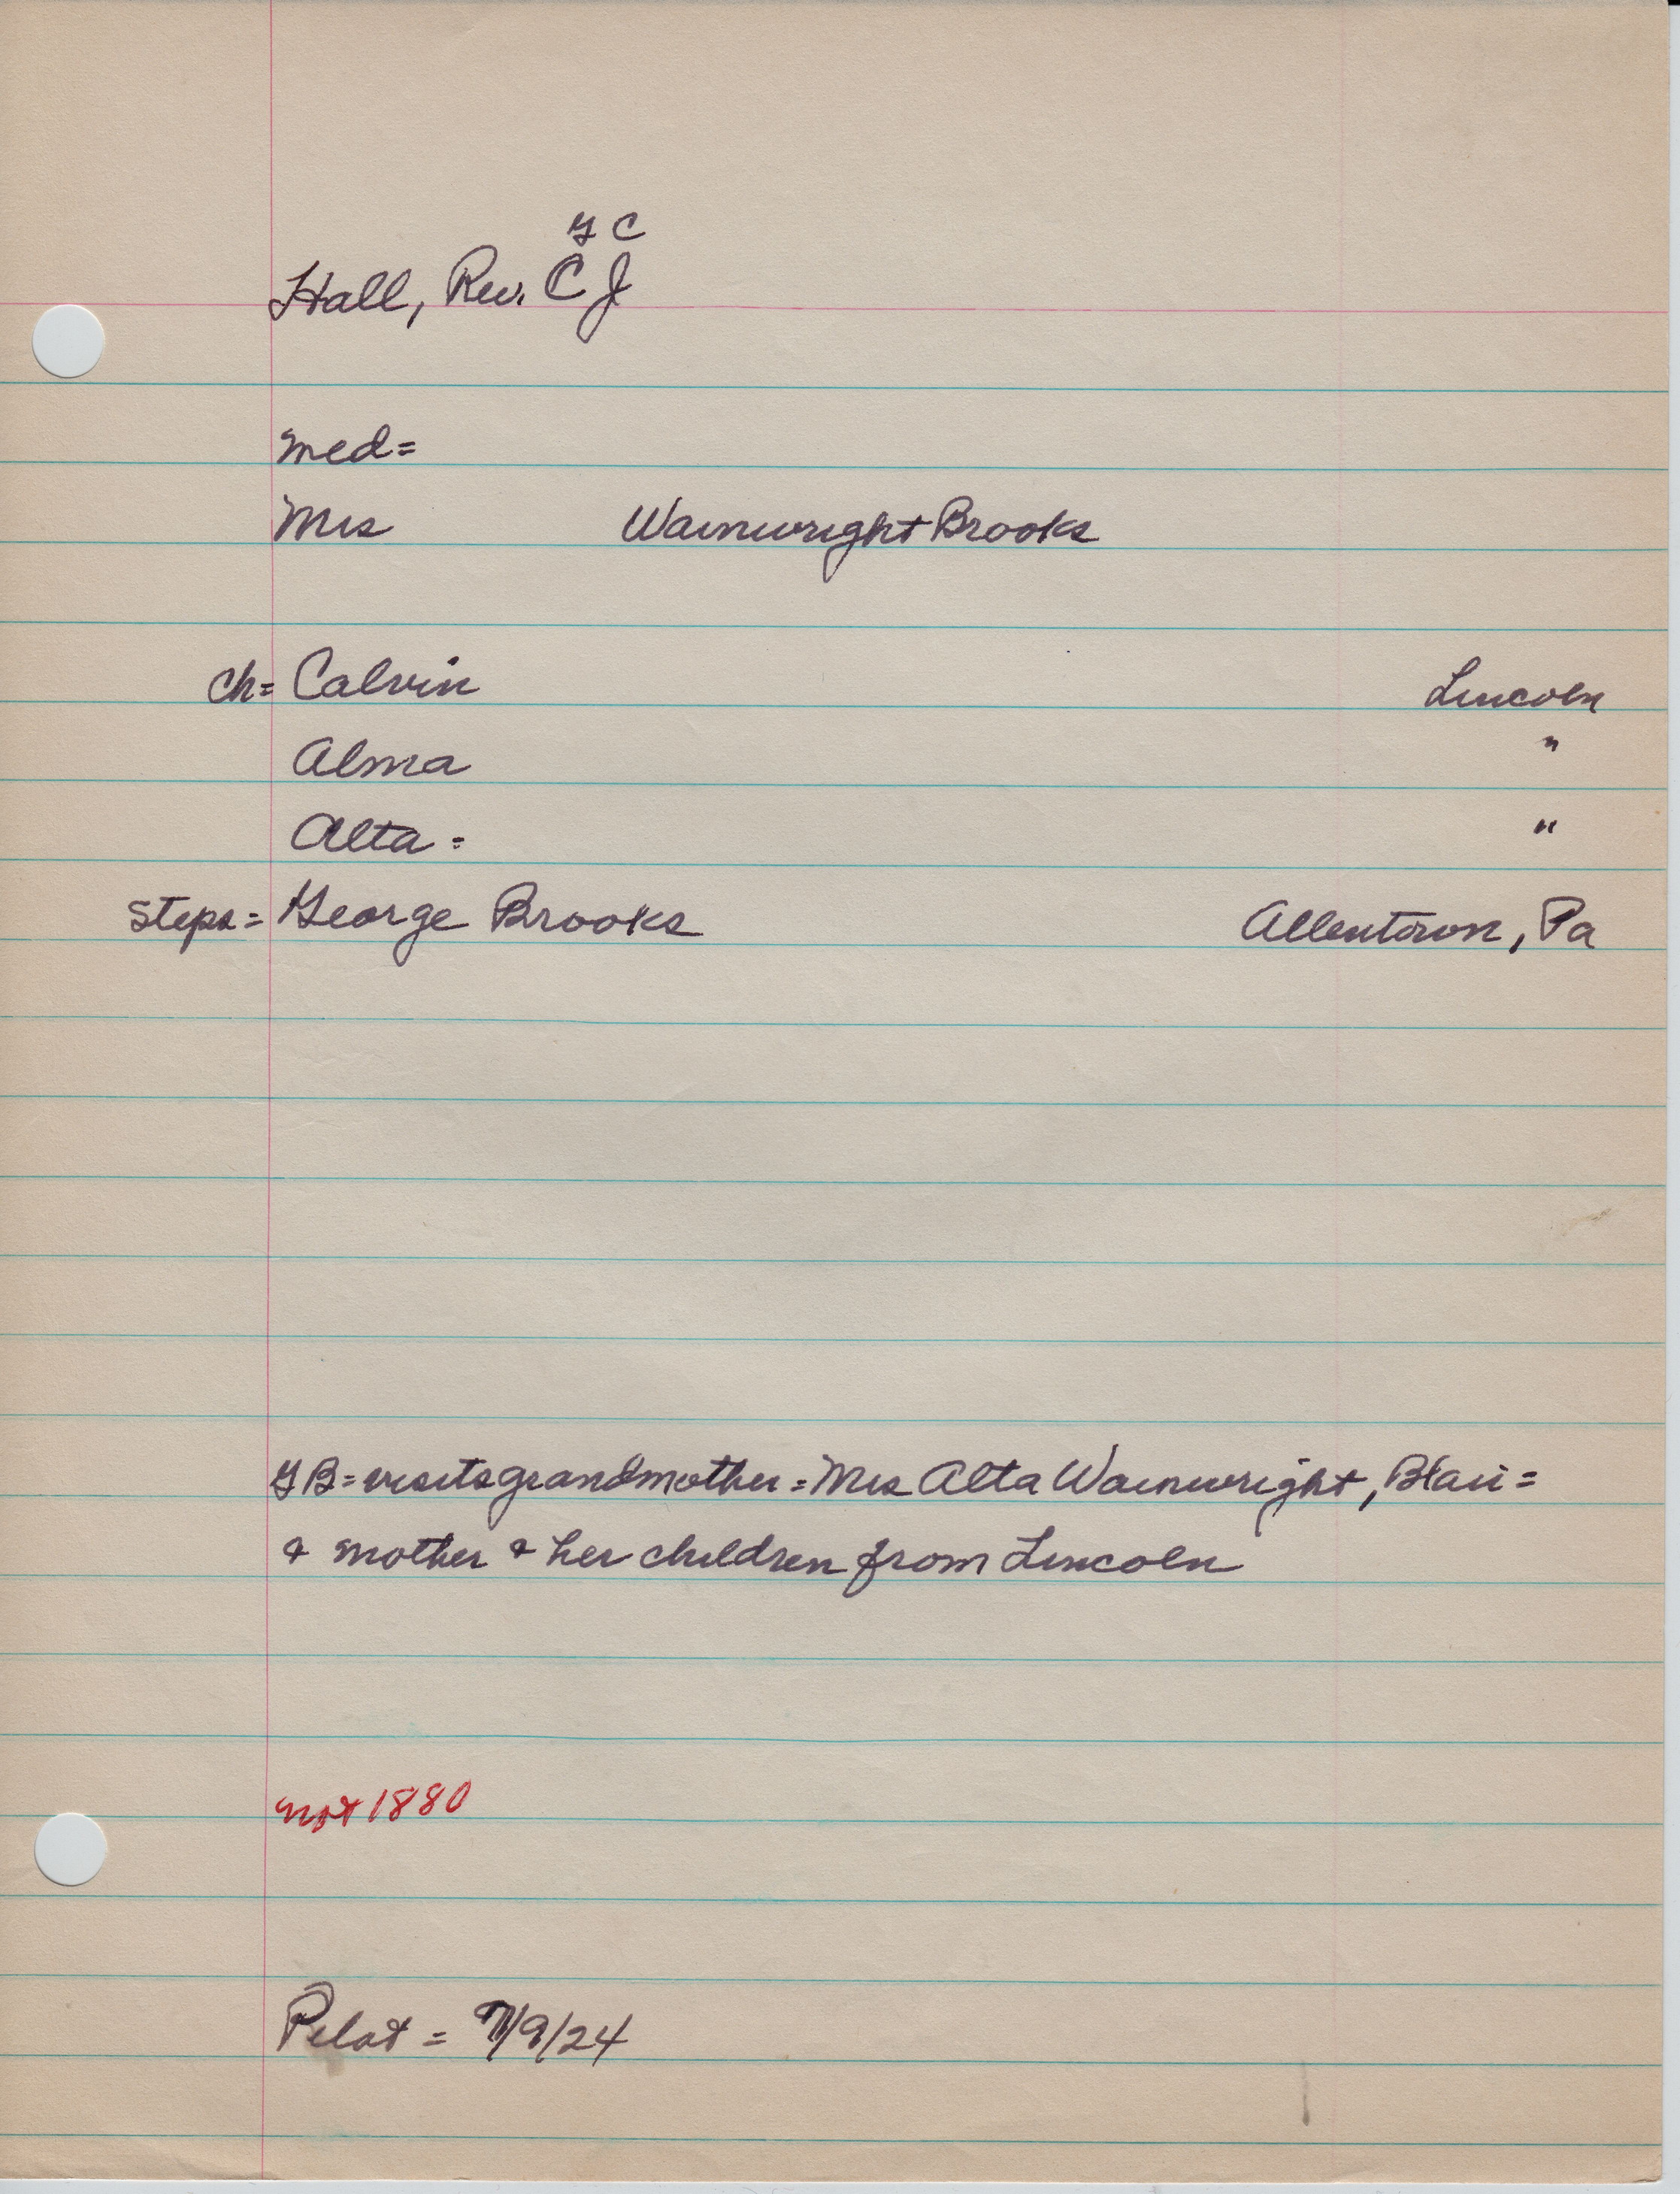 G C
Hall, Rev. C J
med=
Mrs Wainwright Brooks
ch= Calvin Lincoln
Alma "
Alta = "
steps= George Brooks Allentown, Pa
G B= visits grandmother = Mrs Alta Wainwright, Blair =
& mother & her children from Lincoln
not 1880
Pilot = 7/9/24